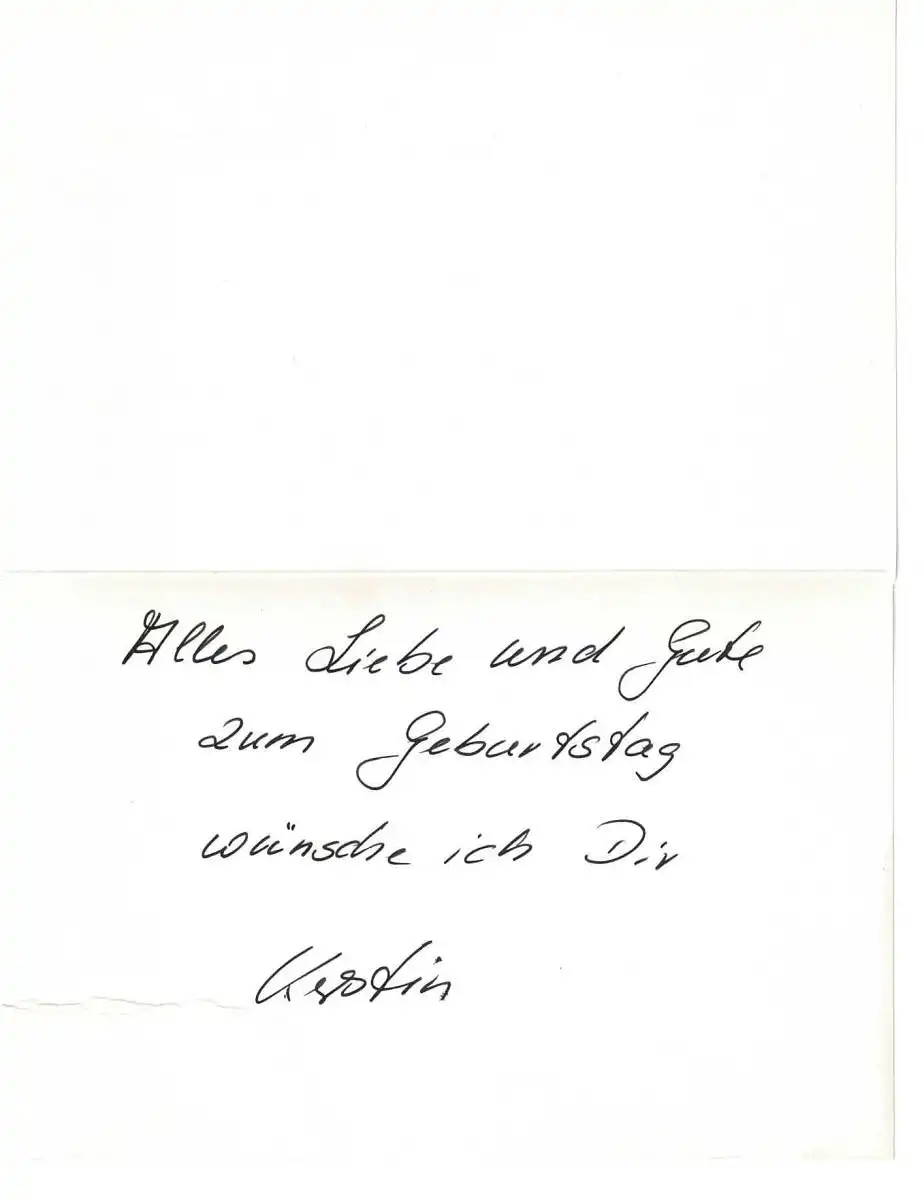 Alles Liebe und Gute
zum Geburtstag
wünsche ich Dir
Kerstin